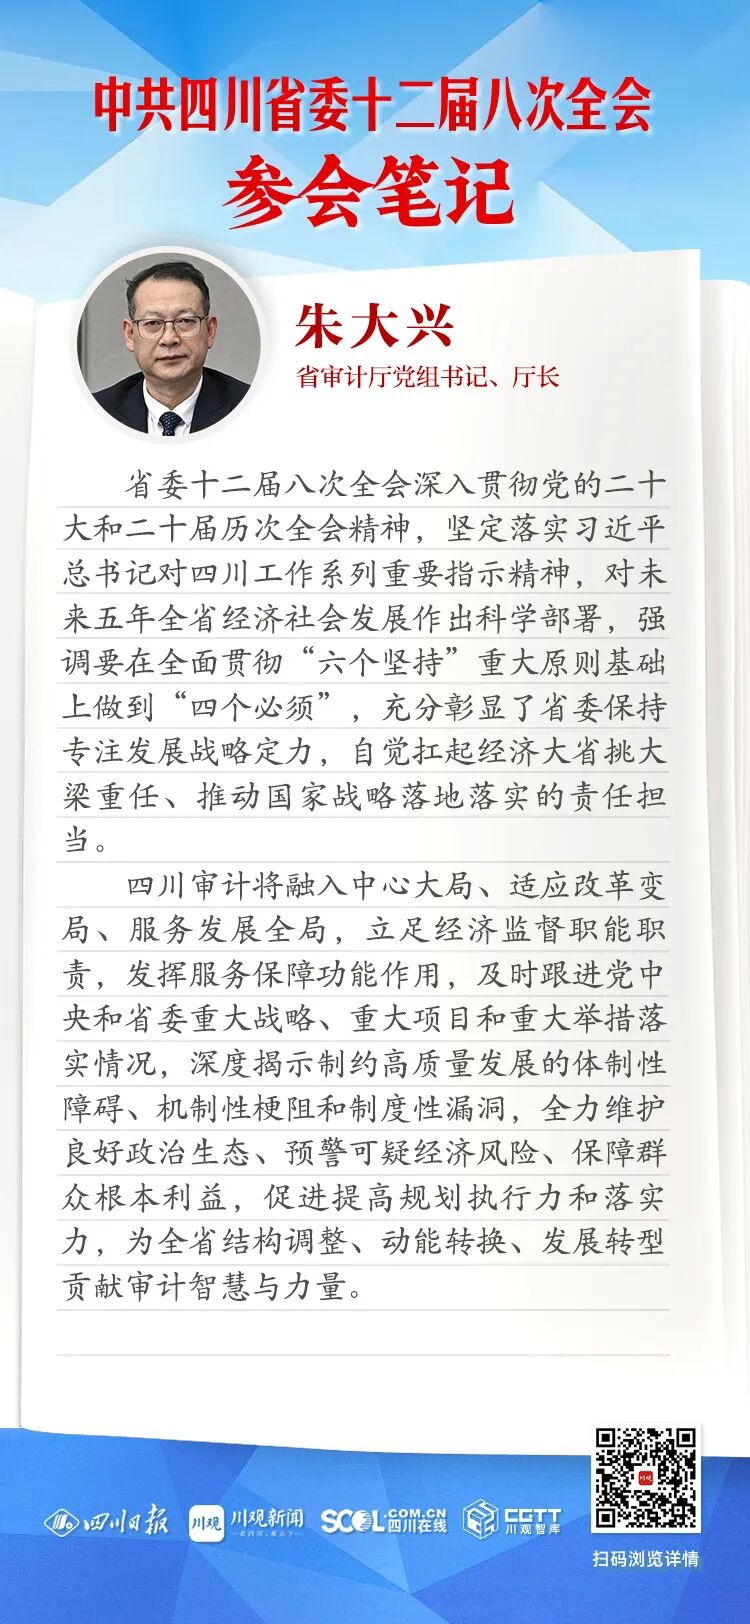 中共四川省委十二届八次全会
参会笔记
朱大兴
省审计厅党组书记、厅长
省委十二届八次全会深入贯彻党的二十
大和二十届历次全会精神，坚定落实习近平
总书记对四川工作系列重要指示精神，对未
来五年全省经济社会发展作出科学部署，强
调要在全面贯彻“六个坚持”重大原则基础
上做到“四个必须”，充分彰显了省委保持
专注发展战略定力，自觉扛起经济大省挑大
梁重任、推动国家战略落地落实的责任担
当。
四川审计将融入中心大局、适应改革变
局、服务发展全局，立足经济监督职能职
责，发挥服务保障功能作用，及时跟进党中
央和省委重大战略、重大项目和重大举措落
实情况，深度揭示制约高质量发展的体制性
障碍、机制性梗阻和制度性漏洞，全力维护
良好政治生态、预警可疑经济风险、保障群
众根本利益，促进提高规划执行力和落实
力，为全省结构调整、动能转换、发展转型
贡献审计智慧与力量。
四川日报
川观
川观新闻
SCOL.COM.CN
四川在线
CGTT
川观智库
川观
扫码浏览详情